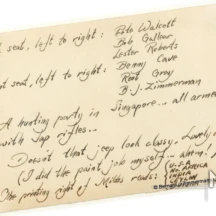 t seat, left to right: Pete Walcott
Bob Galher
Lester Roberts
t seat, left to right: Benny Cave
Root Gray
B.J. Zimmerman
A hunting party in Singapore... all arme
with Jap rifles...
Doesn't that jeep look classy. Lovely
(I did the paint job myself... ahem!
The printing right of Miles reads: U.S.A.
No. AFRICA
INDIA